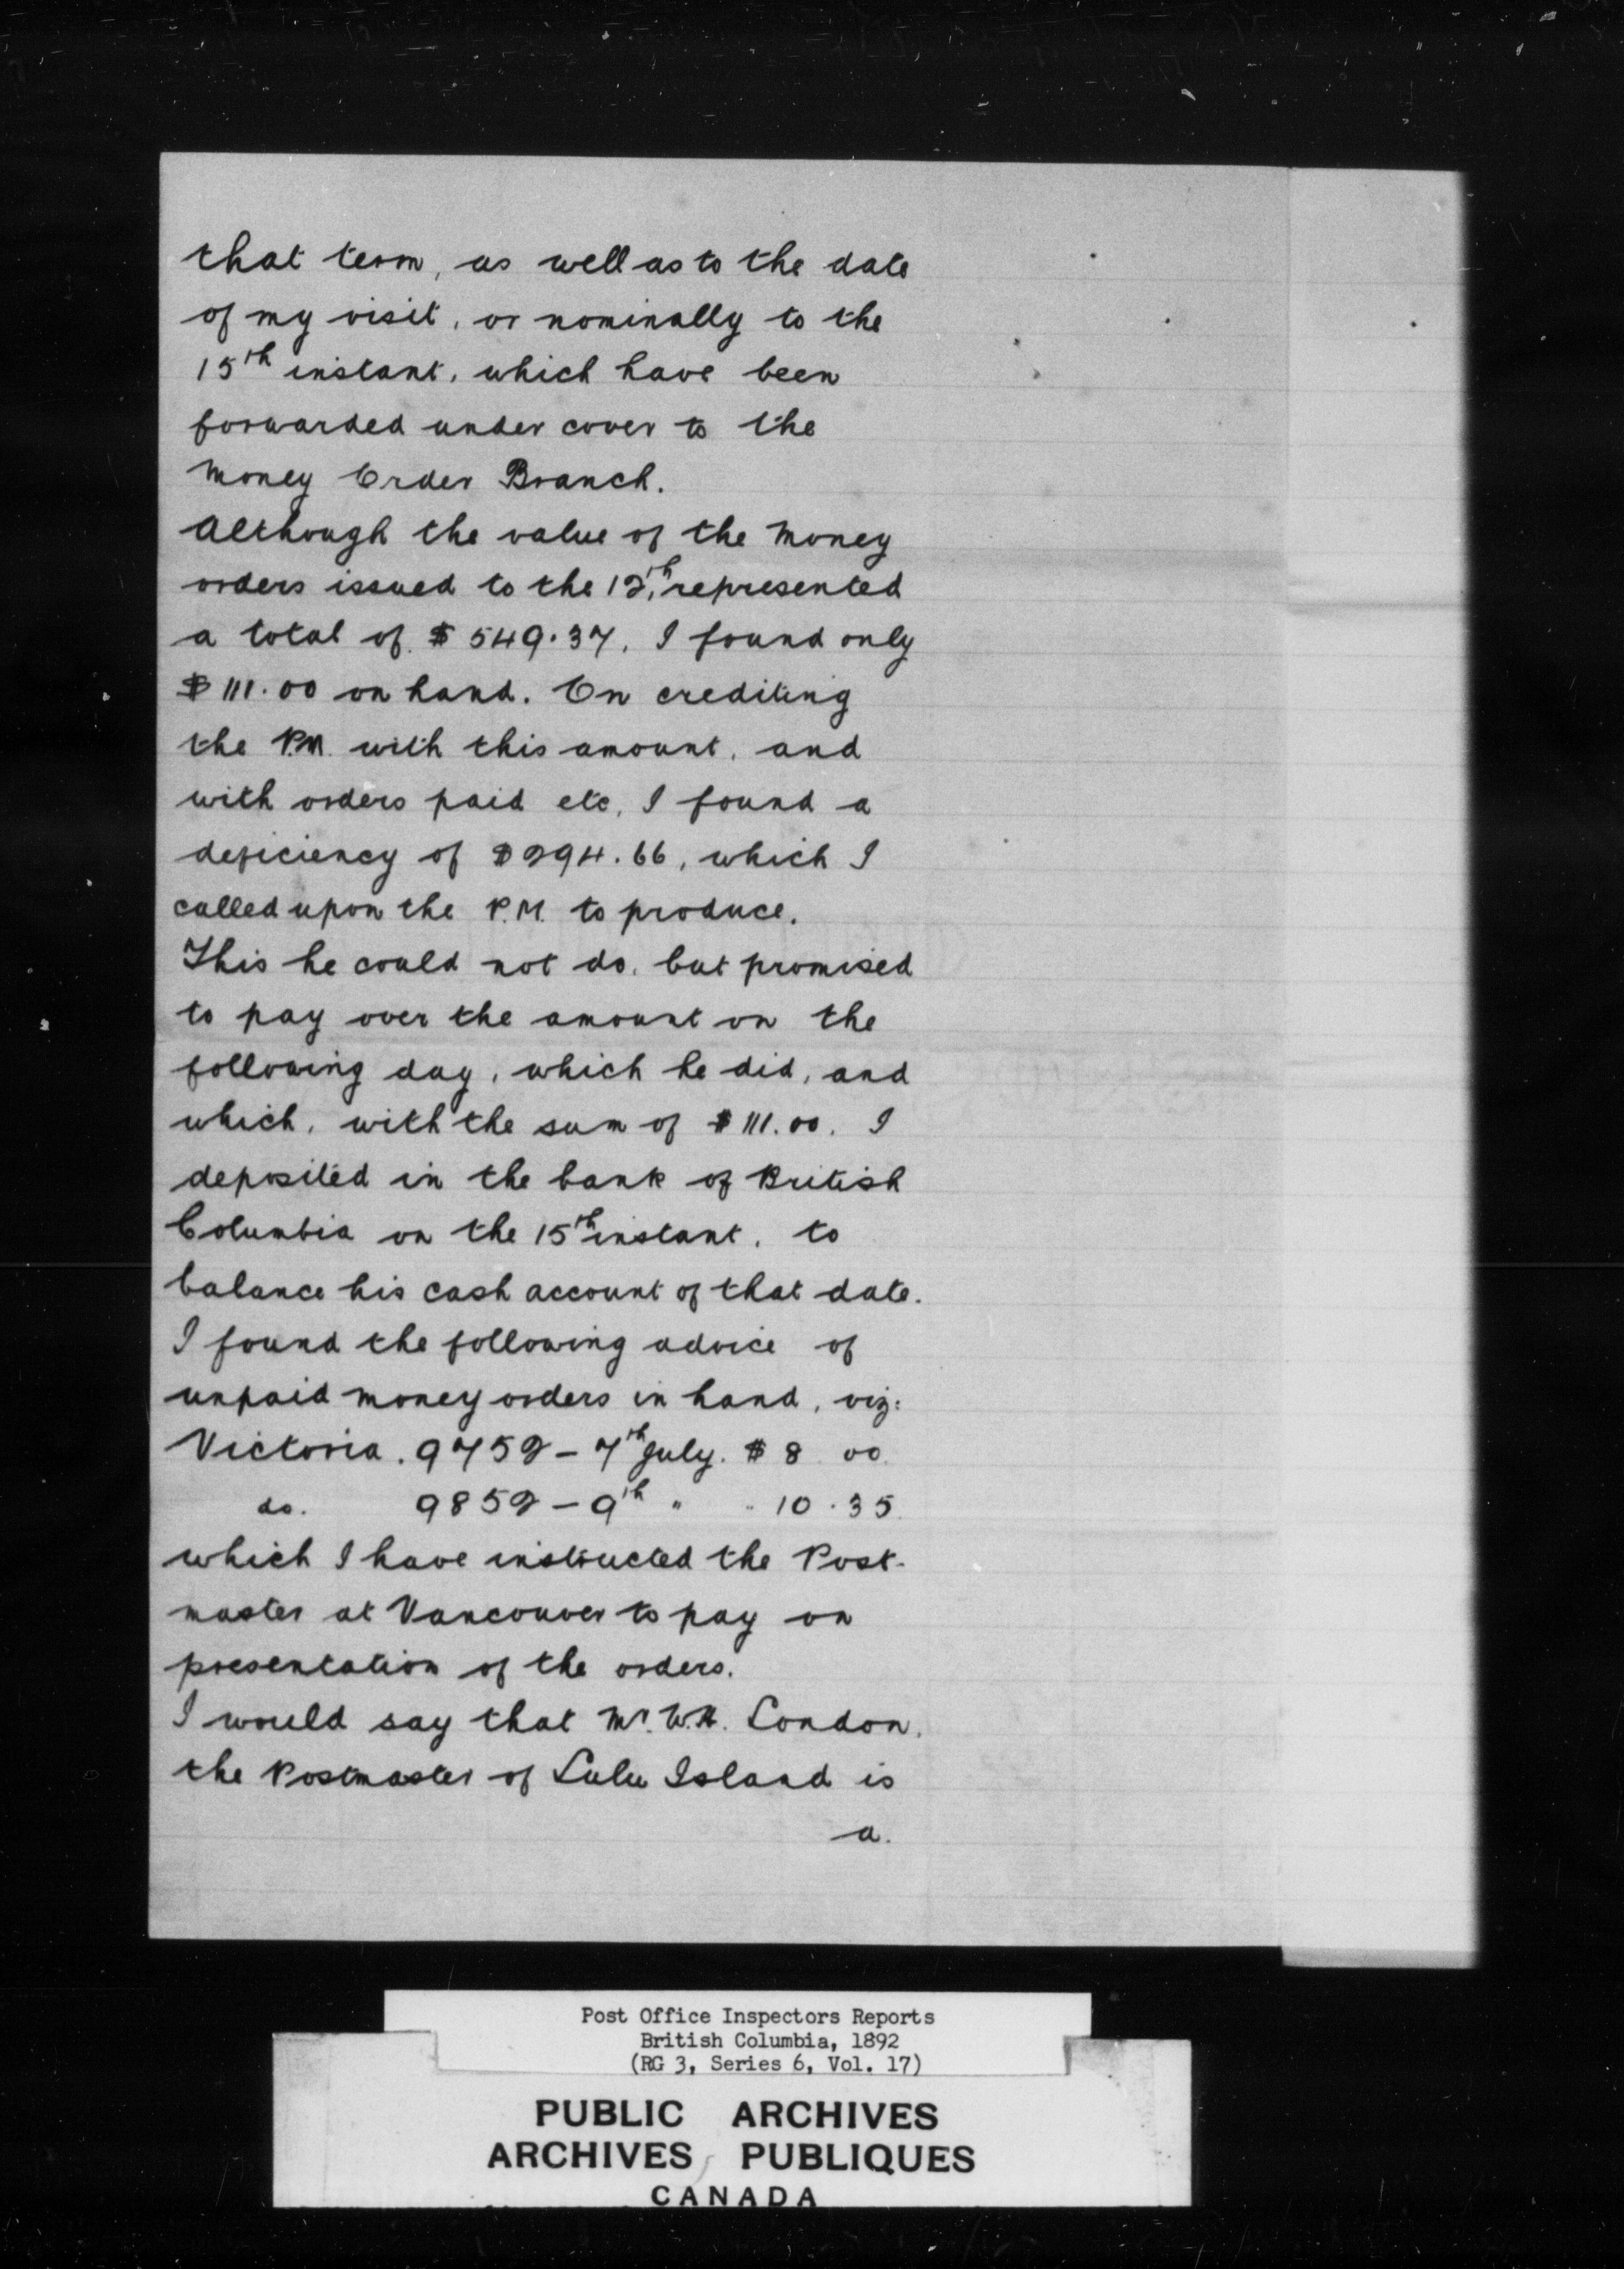 that term, as well as to the date
of my visit, or nominally to the
15th instant, which have been
forwarded under cover to the
Money Order Branch.
Although the value of the Money
orders issued to the 12th, represented
a total of $549.37, I found only
$111.00 on hand. On crediting
the P.M. with this amount, and
with orders paid etc, I found a
deficiency of $294.66, which I
called upon the P.M. to produce.
This he could not do, but promised
to pay over the amount on the
following day, which he did, and
which, with the sum of $111.00. I
deposited in the bank of British
Columbia on the 15th instant, to
balance his cash account of that date.
I found the following advice of
unpaid money orders in hand, viz:
Victoria. 9752 - 7th July. $ 8 00.
do. 9852 - 9th " " 10.35.
which I have instructed the Post-
master at Vancouver to pay on
presentation of the orders.
I would say that Mr. W.H. London,
the Postmaster of Lulu Island is
a.
Post Office Inspectors Reports
British Columbia, 1892
(RG 3, Series 6, Vol. 17)
PUBLIC ARCHIVES
ARCHIVES PUBLIQUES
CANADA